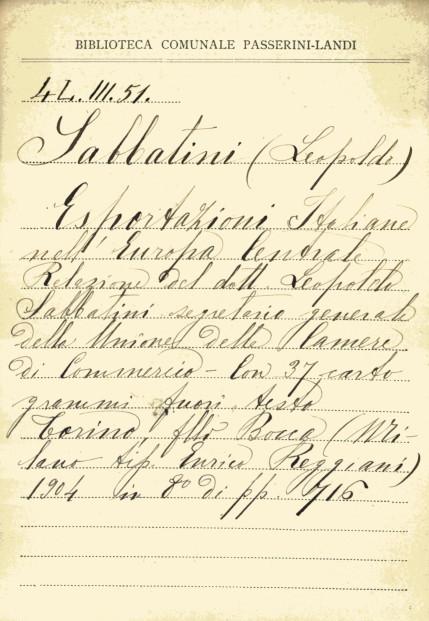 BIBLIOTECA COMUNALE PASSERINI-LANDI
4L.III.51.
Sabbatini (Leopoldo)
Esportazioni Italiane
nell' Europa Centrale
Relazione del dott. Leopoldo
Sabbatini segretario generale
della Unione delle Camere
di Commercio - Con 37 carto
grammi fuori testo
Torino, flli Bocca (Mi-
lano tip. Enrico Reggiani)
1904 in 8º di pp. 716